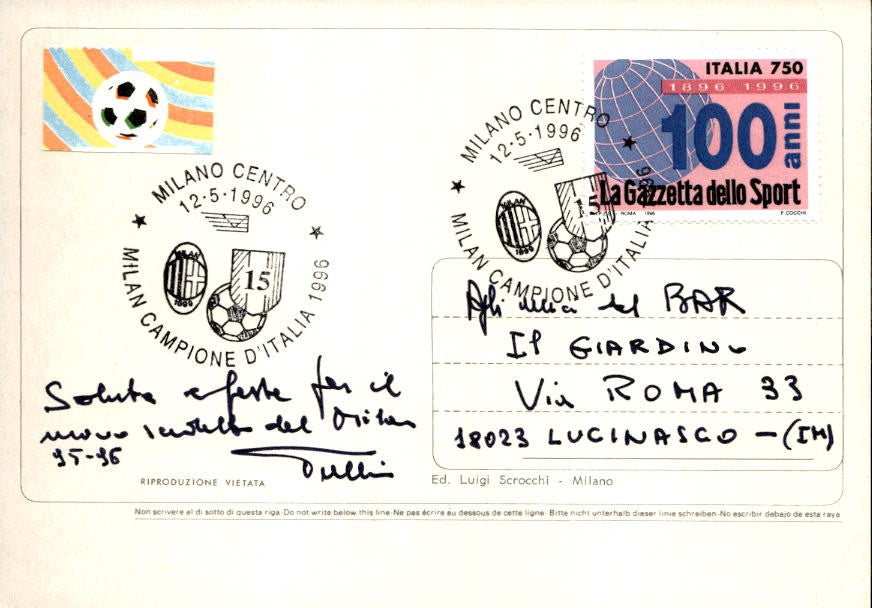 ITALIA 750
1896 1996
100 anni
La Gazzetta dello Sport
ROMA 1996
F. COCCHI
MILANO CENTRO
12-5-1996
MILAN
1899
15
MILAN CAMPIONE D'ITALIA 1996
MILANO CENTRO
12-5-1996
MILAN
1899
15
MILAN CAMPIONE D'ITALIA 1996
Agli amici del BAR
Il GIARDINO
Via ROMA 33
18023 LUCINASCO - (IM)
Saluta e feste per il
nuovo scudetto del Milan
95-96
RIPRODUZIONE VIETATA
Ed. Luigi Scrocchi - Milano
Non scrivere al di sotto di questa riga-Do not write below this line-Ne pas écrire au dessous de cette ligne-Bitte nicht unterhalb dieser linie schreiben-No escribir debajo de esta raya